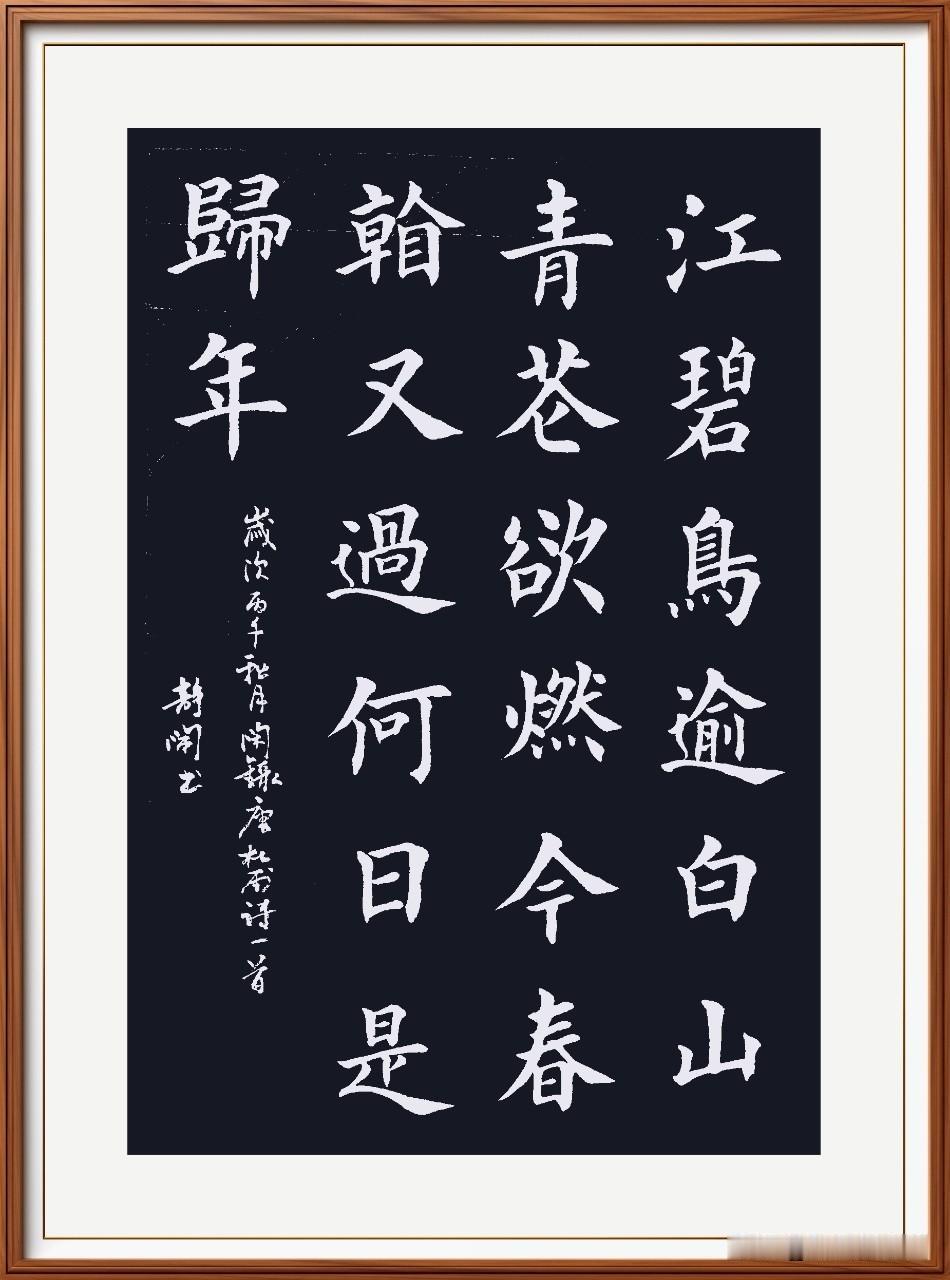 江碧鳥逾白山
青芲欲燃今春
看又過何日是
歸年
歲次丙午秋月閑錄唐杜甫詩一首
靜閑书